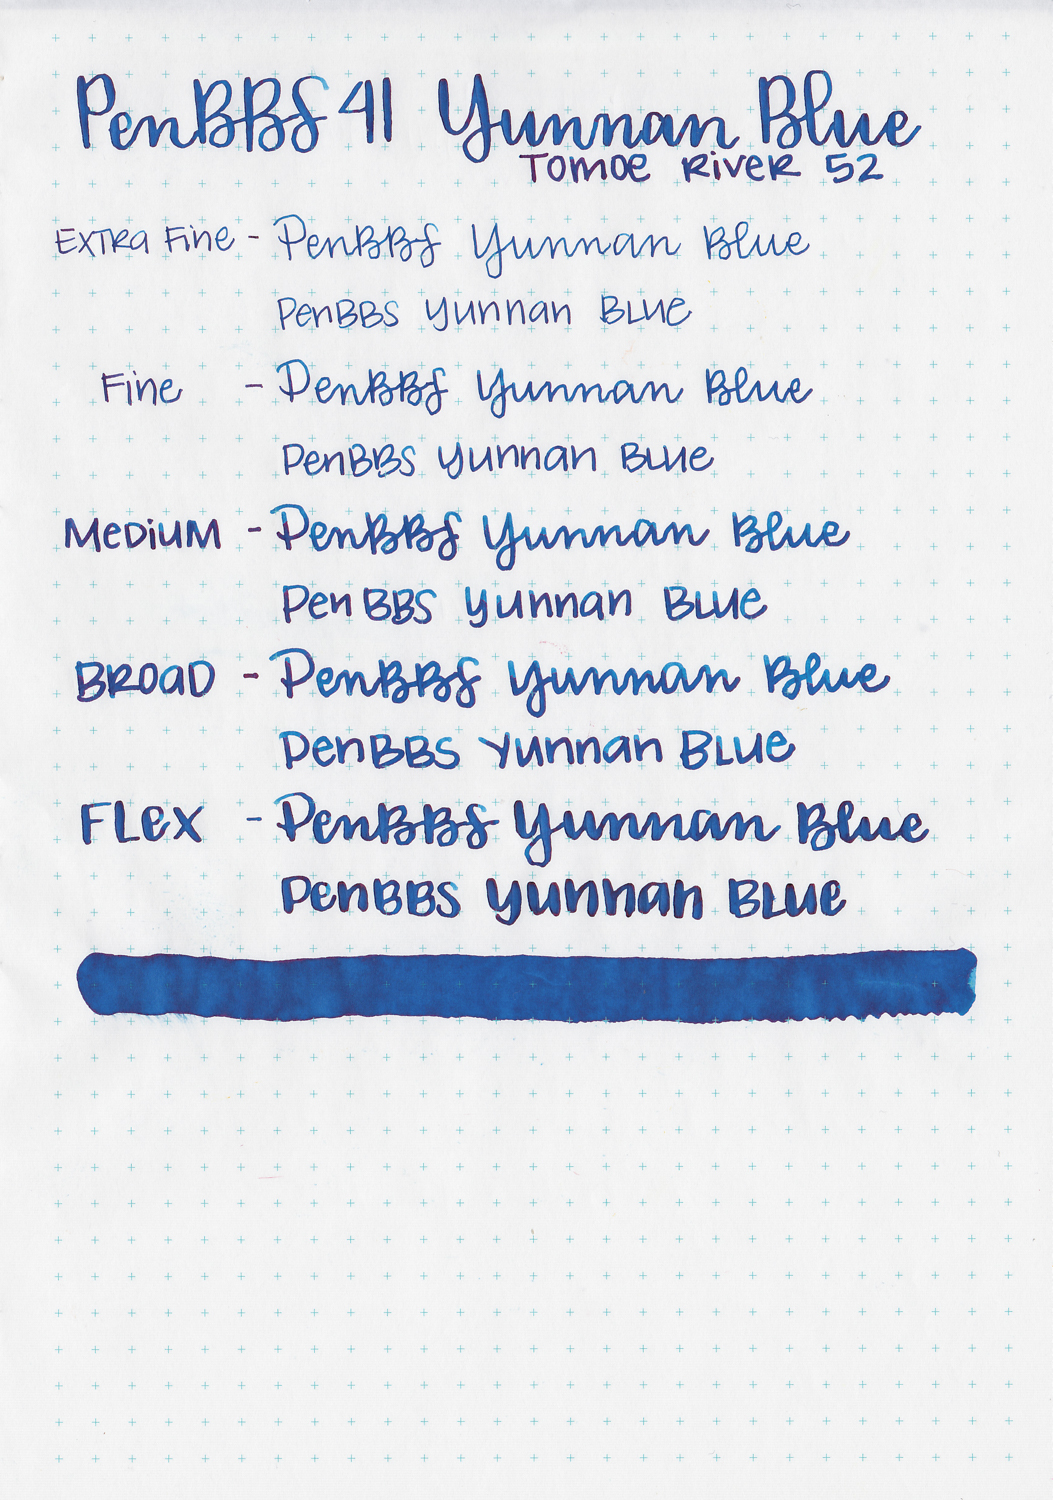 PenBBS 41 Yunnan Blue
Tomoe River 52
Extra Fine - PenBBS Yunnan Blue
PenBBS Yunnan Blue
Fine - PenBBS Yunnan Blue
PenBBS Yunnan Blue
Medium - PenBBS Yunnan Blue
PenBBS Yunnan Blue
Broad - PenBBS Yunnan Blue
PenBBS Yunnan Blue
Flex - PenBBS Yunnan Blue
PenBBS Yunnan Blue